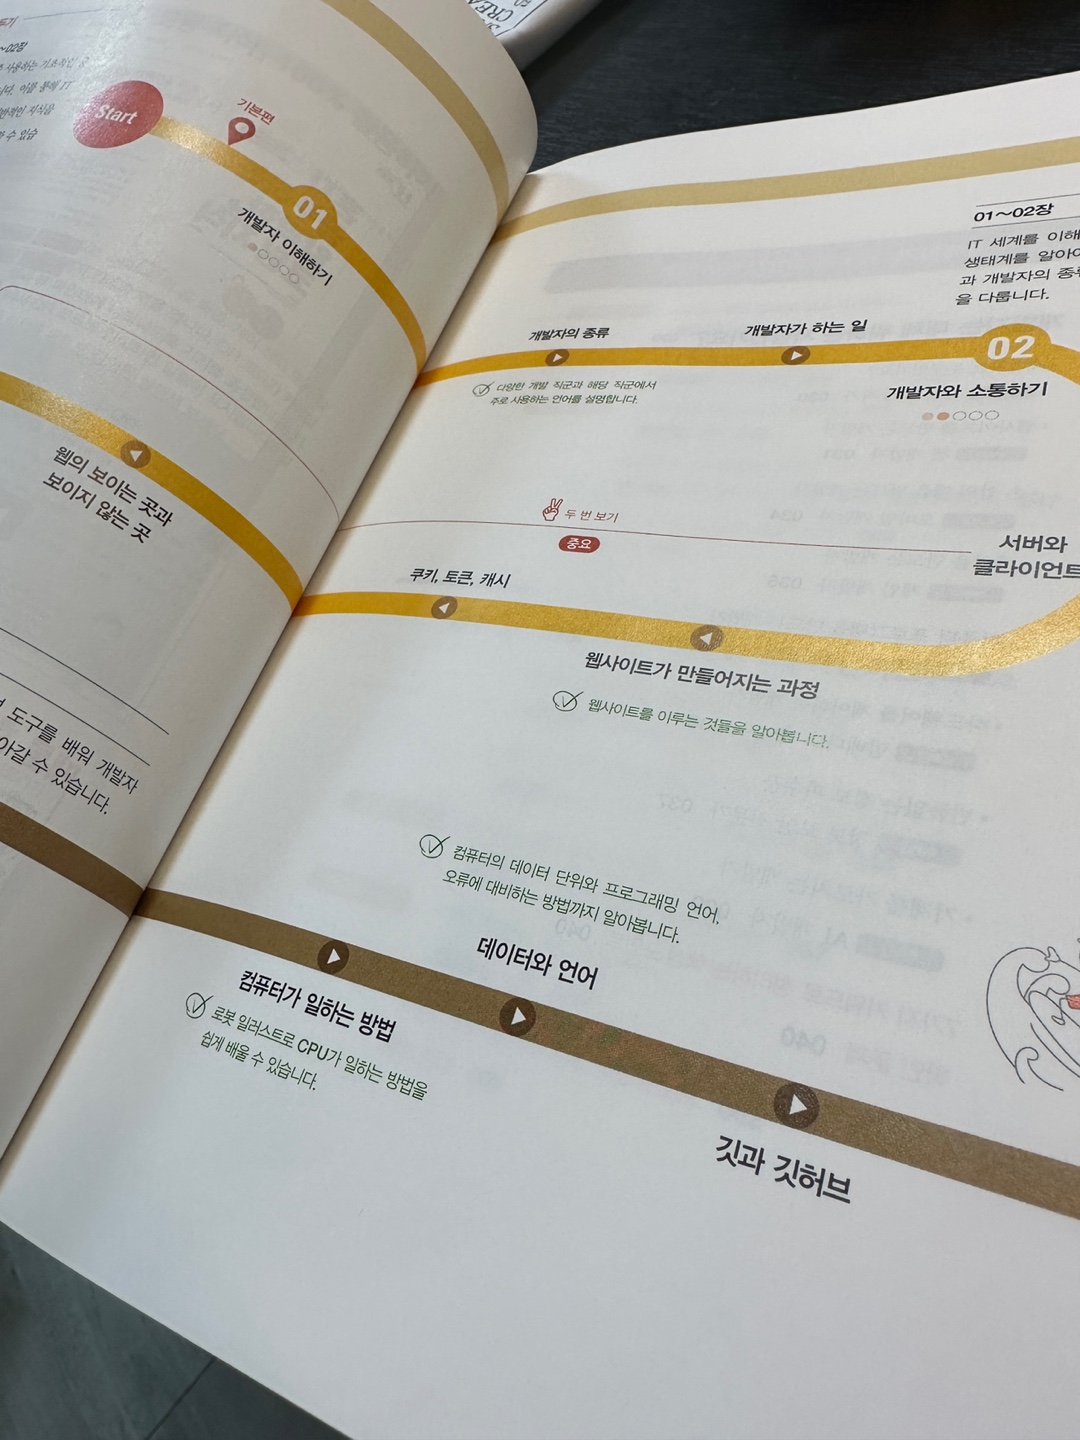 ~02장
사용하는 기초적인
이를 통해 IT
수 있습
Start
기본편
01
개발자 이해하기
웹의 보이는 곳과
보이지 않는 곳
도구를 배워 개발자
아갈 수 있습니다.
01~02장
IT 세계를 이해
생태계를 알아
과 개발자의 종류
을 다룹니다.
개발자의 종류
개발자가 하는 일
02
다양한 개발 직군과 해당 직군에서
주로 사용하는 언어를 설명합니다.
개발자와 소통하기
두 번 보기
중요
서버와
클라이언트
쿠키, 토큰, 캐시
웹사이트가 만들어지는 과정
웹사이트를 이루는 것들을 알아봅니다.
컴퓨터의 데이터 단위와 프로그래밍 언어,
오류에 대비하는 방법까지 알아봅니다.
데이터와 언어
컴퓨터가 일하는 방법
로봇 일러스트로 CPU가 일하는 방법을
쉽게 배울 수 있습니다.
깃과 깃허브